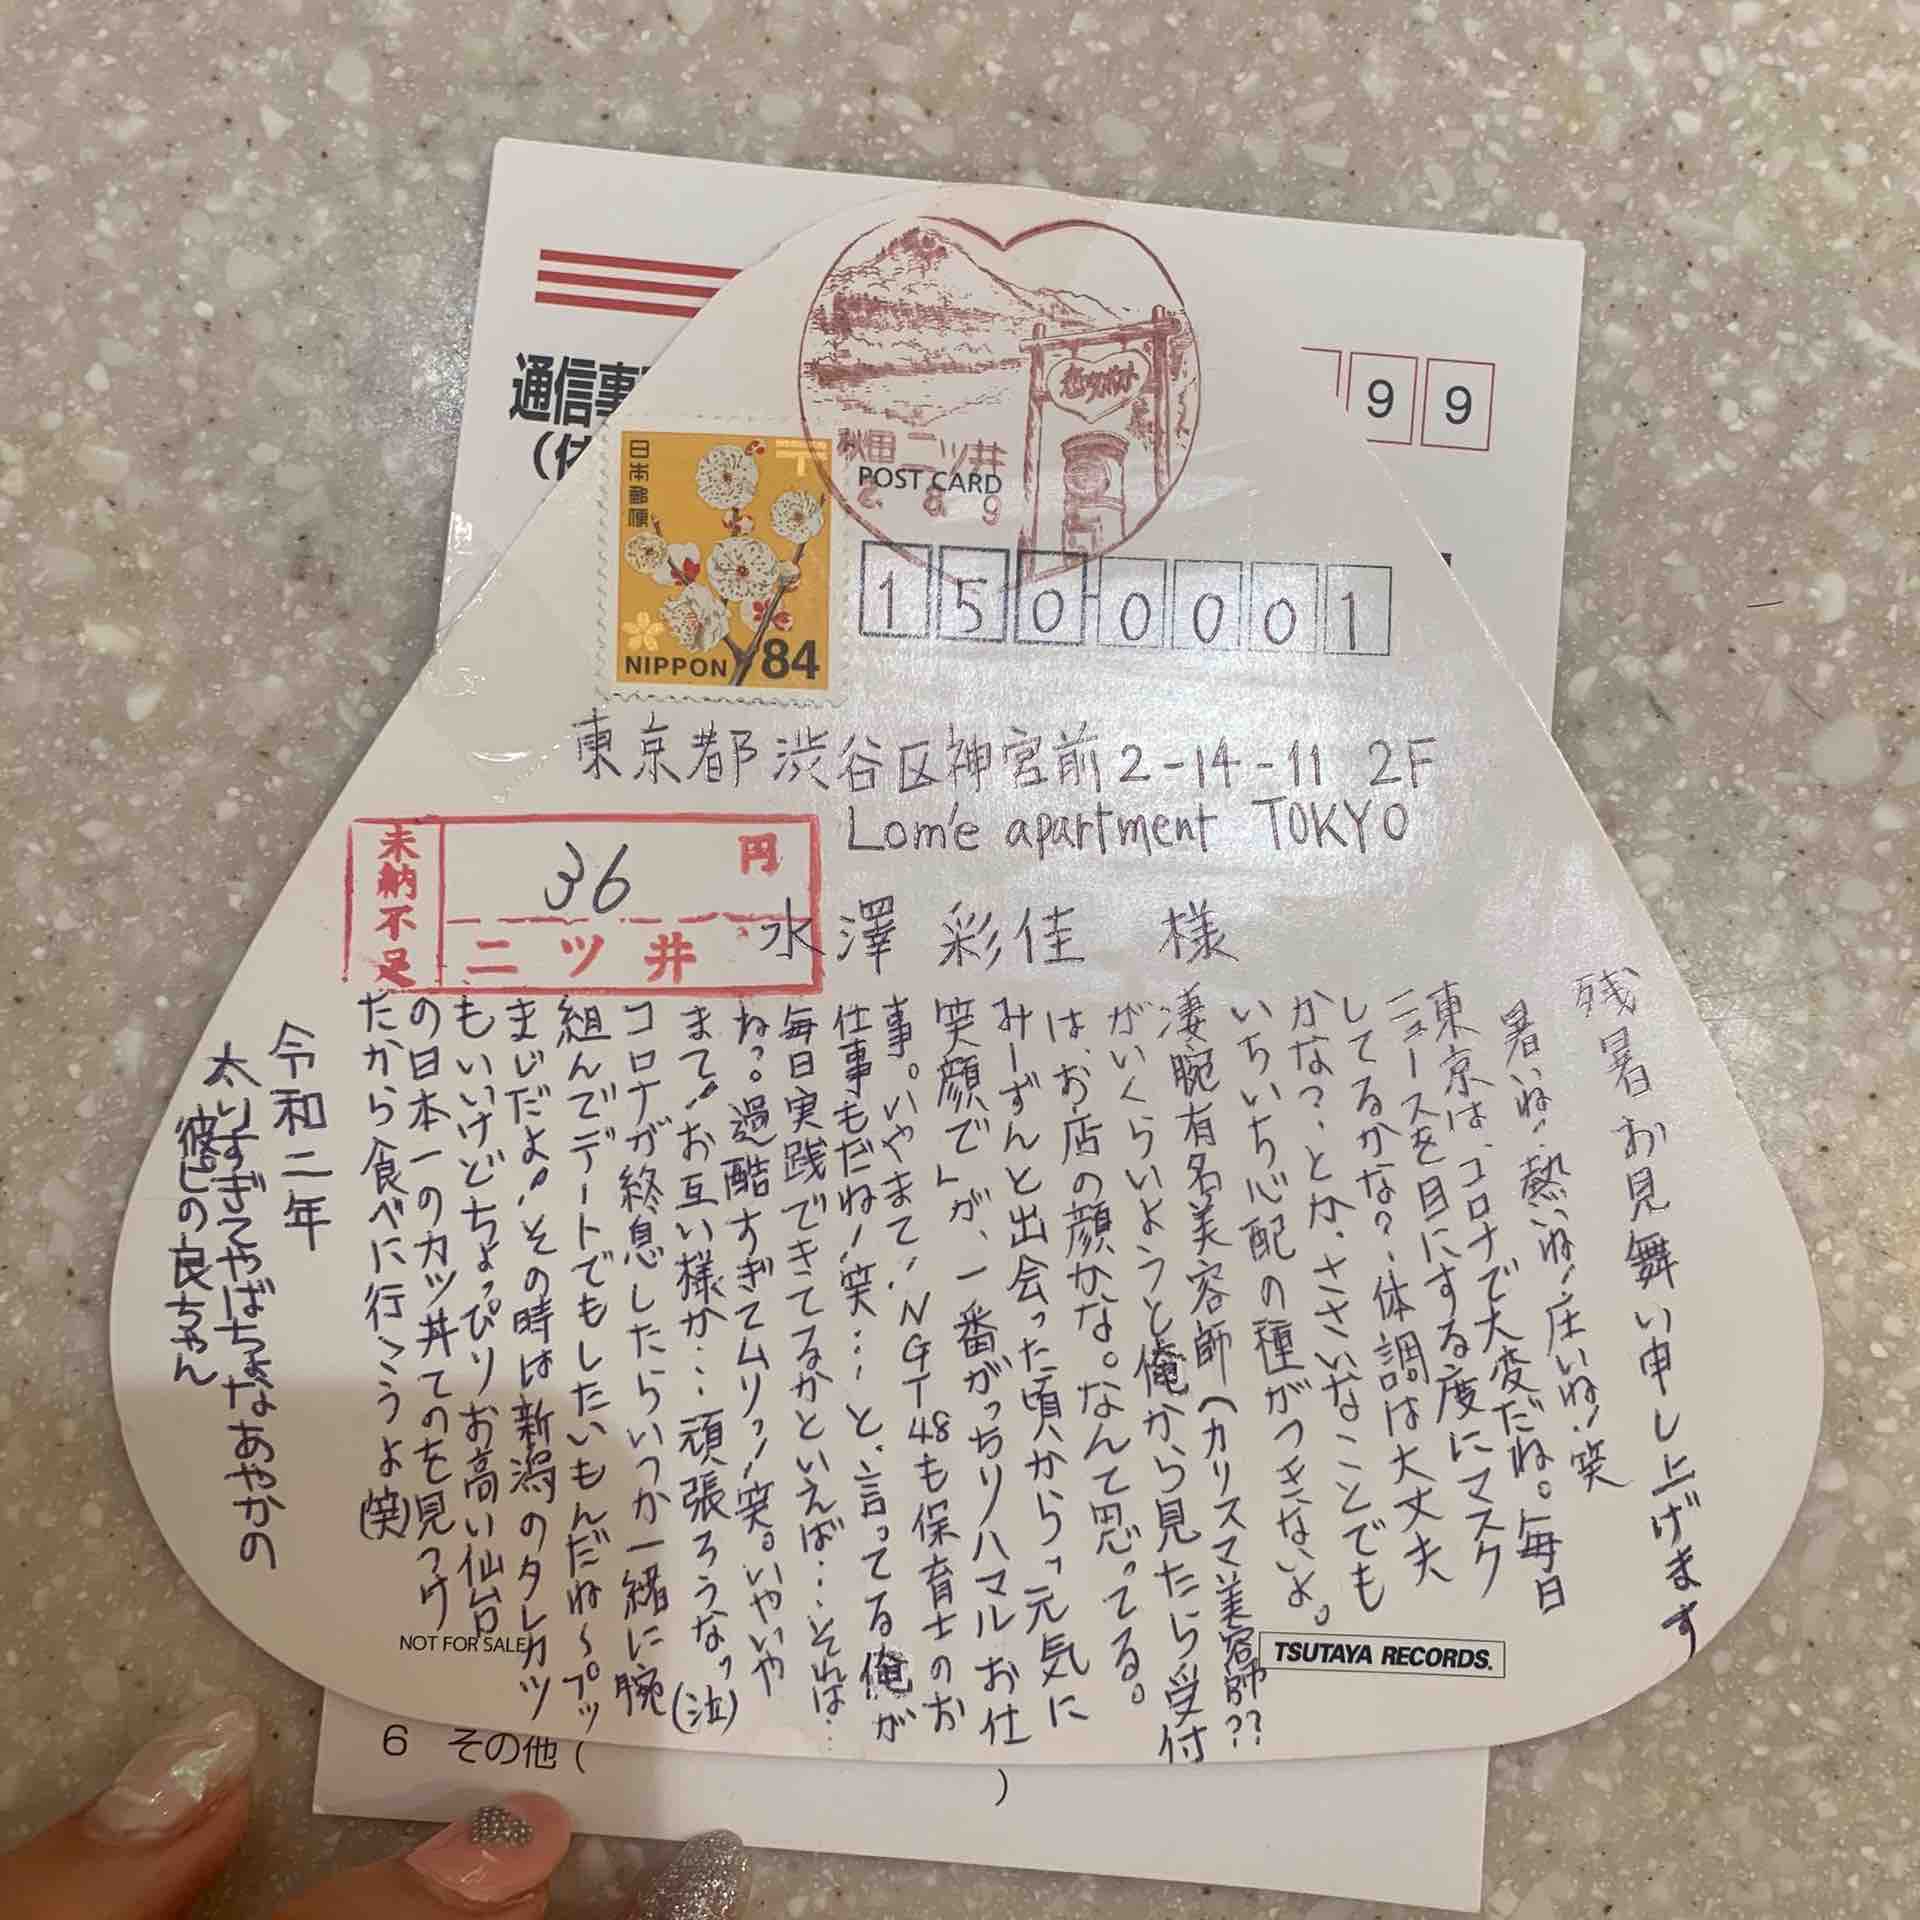 通信事
(住
9 9
秋田 二ツ井
2. 8. 9
恋文ポスト
POST CARD
日本郵便
NIPPON 84
1500001
東京都渋谷区神宮前2-14-11 2F
Lom'e apartment TOKYO
未納不足
36 円
二ツ井
水澤 彩佳 様
残暑お見舞い申し上げます
暑いね!熱いね!圧いね!笑
東京は、コロナで大変だね。毎日
ニュースを目にする度にマスク
してるかな?体調は大丈夫
かな?とか、ささいなことでも
いちいち心配の種がつきないよ。
凄腕有名美容師(カリスマ美容師??
がいくらいようと俺から見たら受付
は、お店の顔かな。なんて思ってる。
みーずんと出会った頃から「元気に
笑顔で」が、一番がっちりハマルお仕
事。いやまて!NGT48も保育士のお
仕事もだね!笑…と、言ってる俺が
毎日実践できてるかといえば…それは…
ね?。過酷すぎてムリっ!笑。いやいや
まて!お互い様か…頑張ろうなっ(泣)
コロナが終息したらいつか一緒に腕
組んでデートでもしたいもんだね〜プッ
まじだよ!その時は新潟のタレカツ
もいいけどちょっぴりお高い仙台
の日本一のカツ丼てのを見っけ
たから食べに行こうよ(笑)
令和二年
太りすぎてやばちょなあやかの
彼ピの良ちゃん
NOT FOR SALE
TSUTAYA RECORDS.
6 その他( )